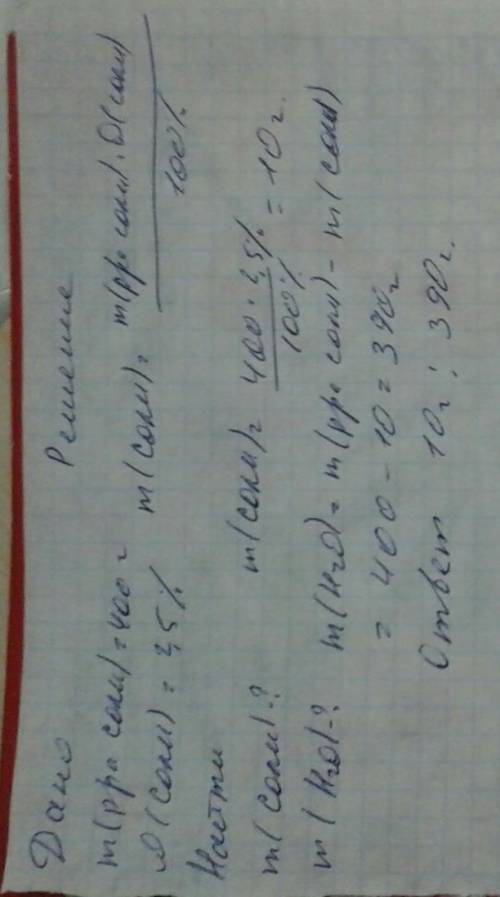 Дано
m(р-ра соли) = 400 г
ω(соли) = 2,5%
Найти
m(соли) - ?
m(H₂O) - ?
Решение
m(соли) = m(р-ра соли) · ω(соли) / 100%
m(соли) = 400 · 2,5% / 100% = 10 г.
m(H₂O) = m(р-ра соли) - m(соли)
= 400 - 10 = 390 г
Ответ 10 г; 390 г.